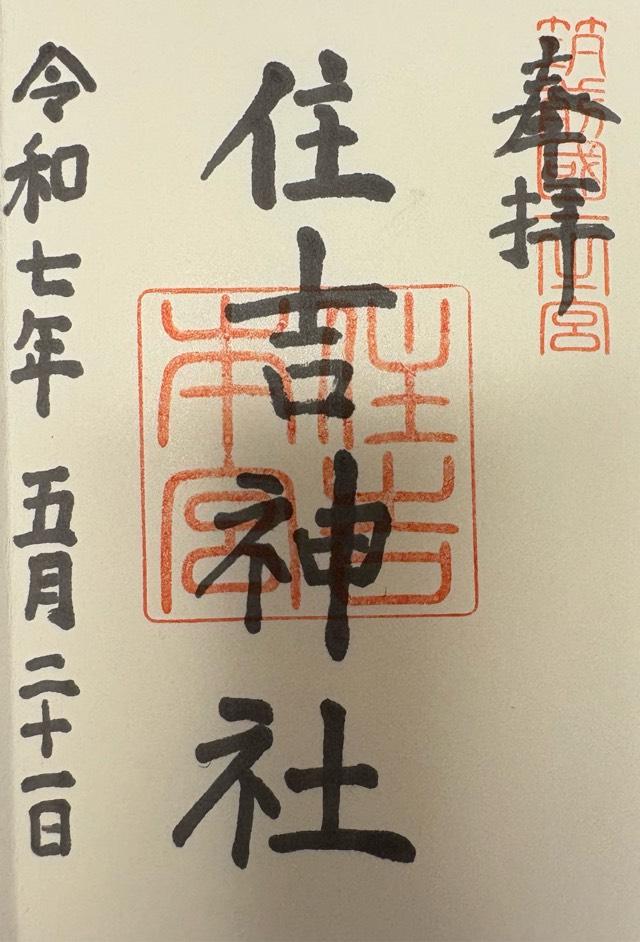 奉拝
筑前國一之宮
住吉神社
住吉本宮
令和七年 五月二十一日